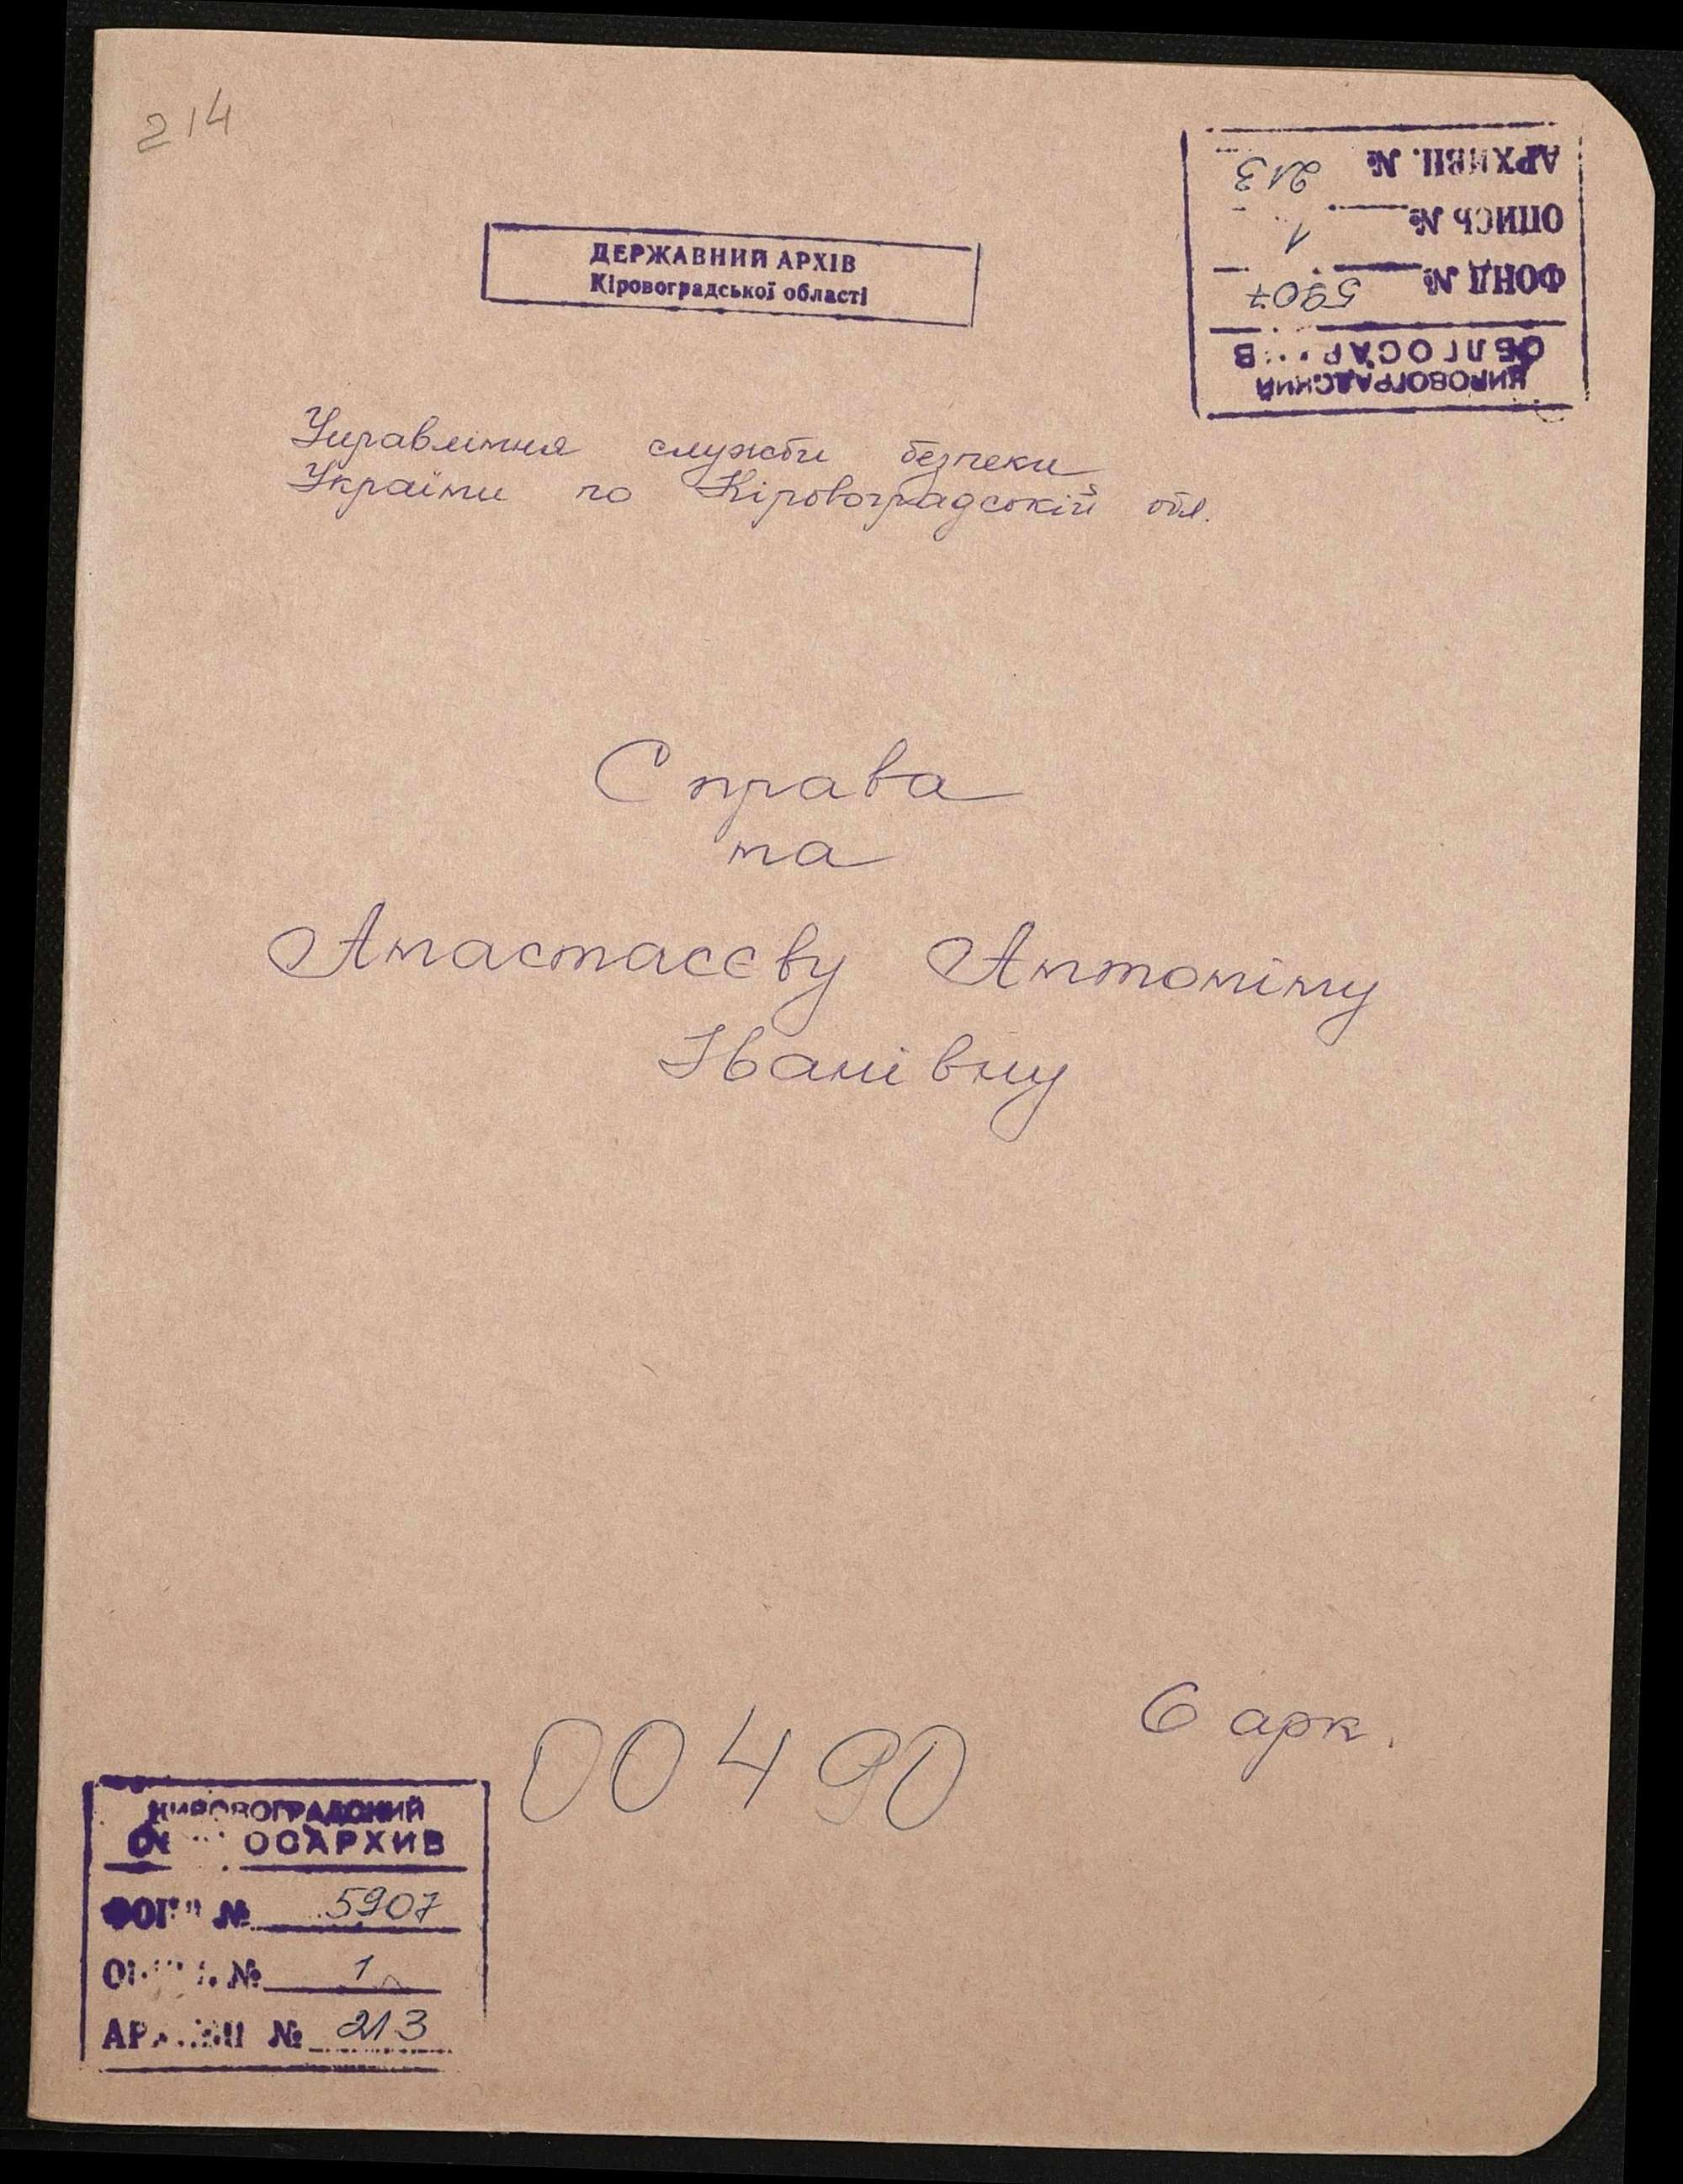 214
АРХИВН. № 213
ОПИСЬ № 1
ФОНД № 5907
КИРОВОГРАДСКИЙ
ДЕРЖАВНИЙ АРХІВ
Кіровоградської області
Управління служби безпеки
України по Кіровоградській обл.
Справа
на
Анастасєву Антоніну
Іванівну
6 арк.
00490
КИРОВОГРАДСКИЙ
ОБЛГОСАРХИВ
ФОНД № 5907
ОПИСЬ № 1
АРХИВН № 213